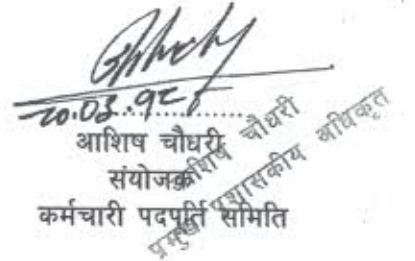 आशिष चौधरी
संयोजक
कर्मचारी पदपूर्ति समिति
आशिष चौधरी
प्रमुख प्रशासकीय अधिकृत